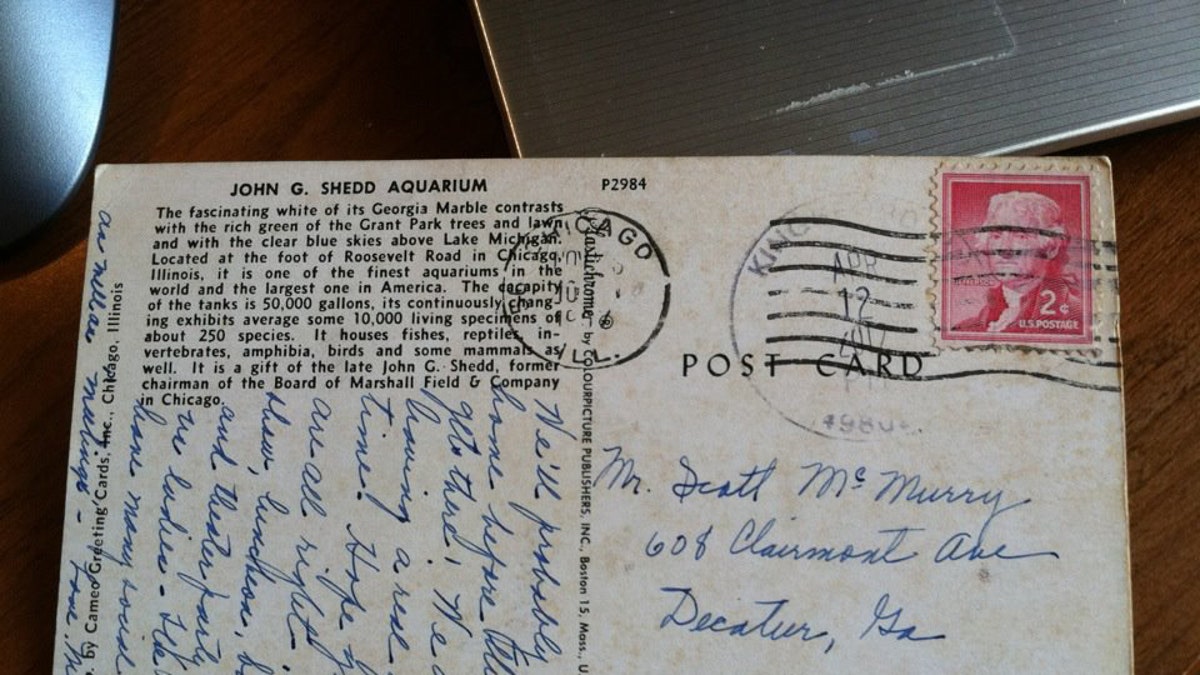 JOHN G. SHEDD AQUARIUM
P2984
The fascinating white of its Georgia Marble contrasts
with the rich green of the Grant Park trees and lawn
and with the clear blue skies above Lake Michigan.
Located at the foot of Roosevelt Road in Chicago,
Illinois, it is one of the finest aquariums in the
world and the largest one in America. The capacity
of the tanks is 50,000 gallons, its continuously chang-
ing exhibits average some 10,000 living specimens of
about 250 species. It houses fishes, reptiles, in-
vertebrates, amphibia, birds and some mammals as
well. It is a gift of the late John G. Shedd, former
chairman of the Board of Marshall Field & Company
in Chicago.
CHICAGO
ILL.
Plastichrome ® by COLOURPICTURE PUBLISHERS, INC., Boston 15, Mass., U.
by Cameo Greeting Cards, Inc., Chicago, Illinois
KING
APR
12
PM
2¢
U.S. POSTAGE
POST CARD
Mr. Scott McMurry
608 Clairmont Ave
Decatur, Ga
We'll probably
home before
get there. We
having a real
time! Hope
are all right.
show, luncheon,
and theater party
ladies -
have many social
meetings -